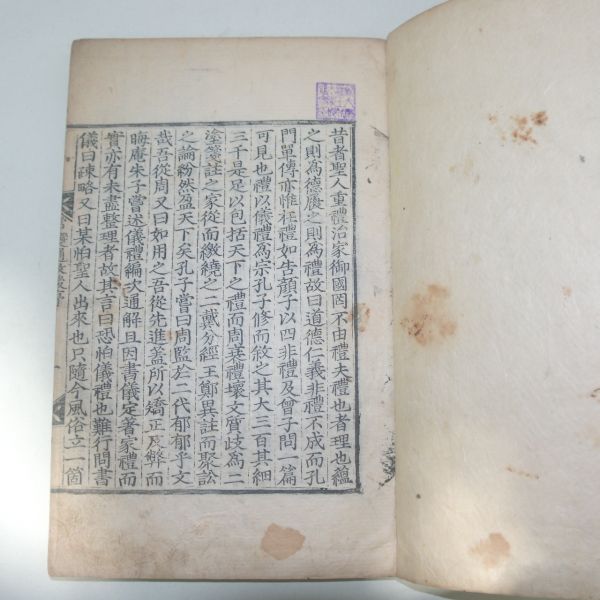 昔者聖人重禮治家御國罔不由禮夫禮也者理也蘊
之則為德履之則為禮故曰道德仁義非禮不成而孔
門單傳亦惟在禮如告顏子以四非禮及曾子問一篇
可見也禮以儀禮為宗孔子修而敘之其大三百其細
三千是足以包括天下之禮而周衰禮壞文質歧為二
塗箋註之家從而繳繞之二戴分經王鄭異註而聚訟
之論紛然盈天下矣孔子嘗曰周監於二代郁郁乎文
哉吾從周又曰如用之吾從先進蓋所以矯正及弊而
晦庵朱子嘗述儀禮編次通解且因書儀定著家禮而
實亦有未盡整理者故其言曰恐怕儀禮也難行問書
儀曰疎略又曰某怕聖人出來也只隨今風俗立一箇